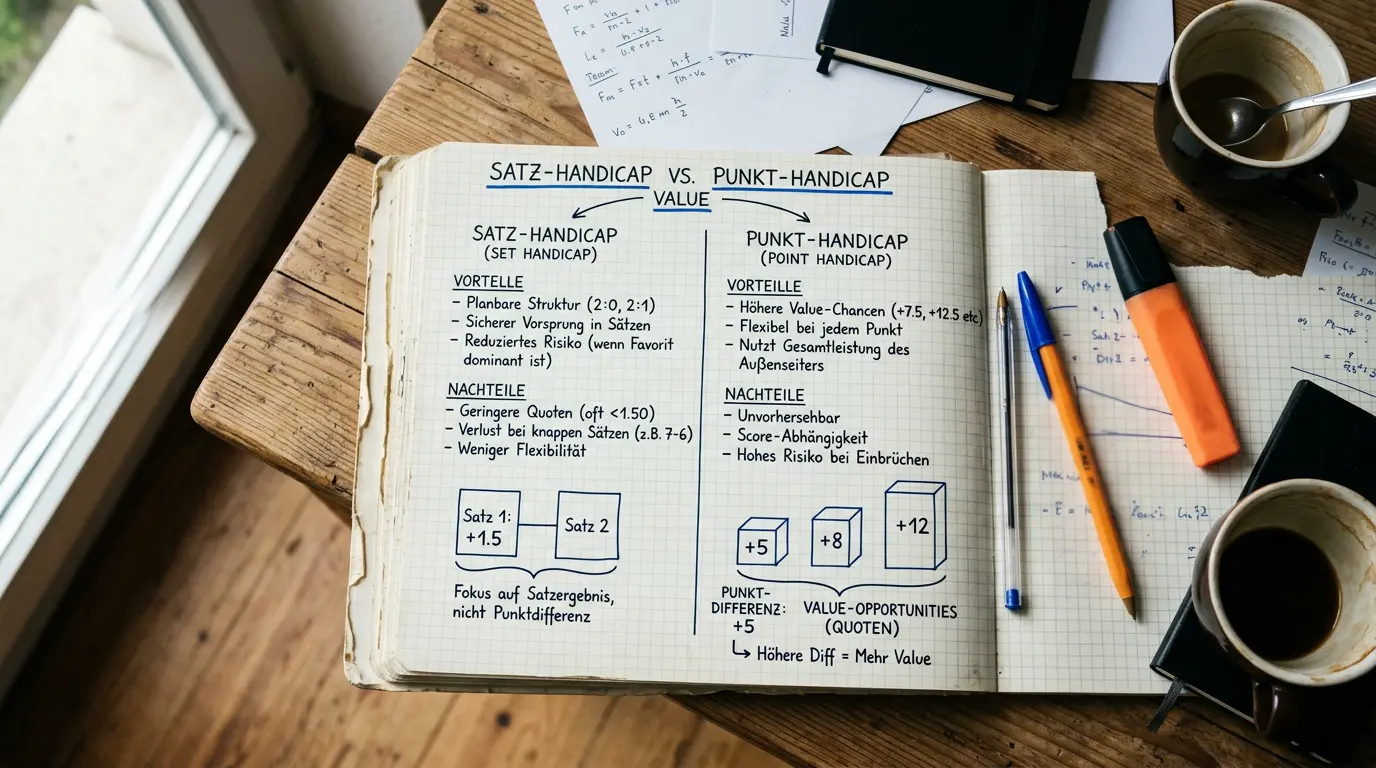 SATZ-HANDICAP VS. PUNKT-HANDICAP
VALUE
SATZ-HANDICAP
(SET HANDICAP)
VORTELLE
– Planbare Struktur (2:0, 2:1)
– Sicherer Vorsprung in Sätzen
– Reduziertes Risiko (wenn Favorit
dominant ist)
NACHTEILE
– Geringere Quoten (oft <1.50)
– Verlust bei knappen Sätzen (z.B. 7-6)
– Weniger Flexibilität
Satz 1:
+1.5
Satz 2
Fokus auf Satzergebnis,
nicht Punktdifferenz
PUNKT-HANDICAP
(POINT HANDICAP)
VORTEILLE
– Höhere Value-Chancen (+7.5, +12.5 etc)
– Flexibel bei jedem Punkt
– Nutzt Gesamtleistung des
Außenseiters
NACHTEILE
– Unvorhersehbar
– Score-Abhängigkeit
– Hohes Risiko bei Einbrüchen
+5
+8
+12
PUNKT-
DIFFERENZ:
+5
VALUE-OPPORTUNITIES
(QUOTEN)
Höhere Diff = Mehr Value